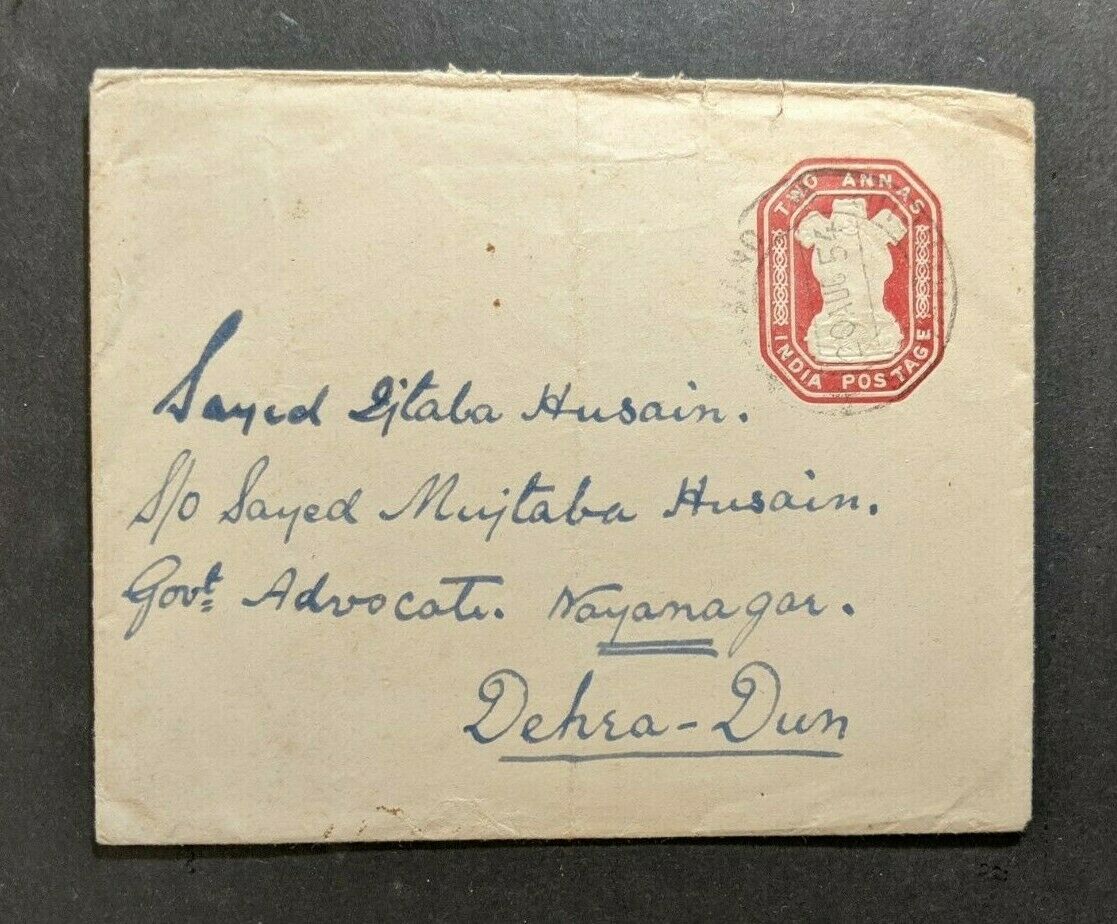 TWO ANNAS
20 AUG 54
INDIA POSTAGE
Sayed Ijtaba Husain.
S/o Sayed Mujtaba Husain.
Govt. Advocate. Nayanagar.
Dehra-Dun